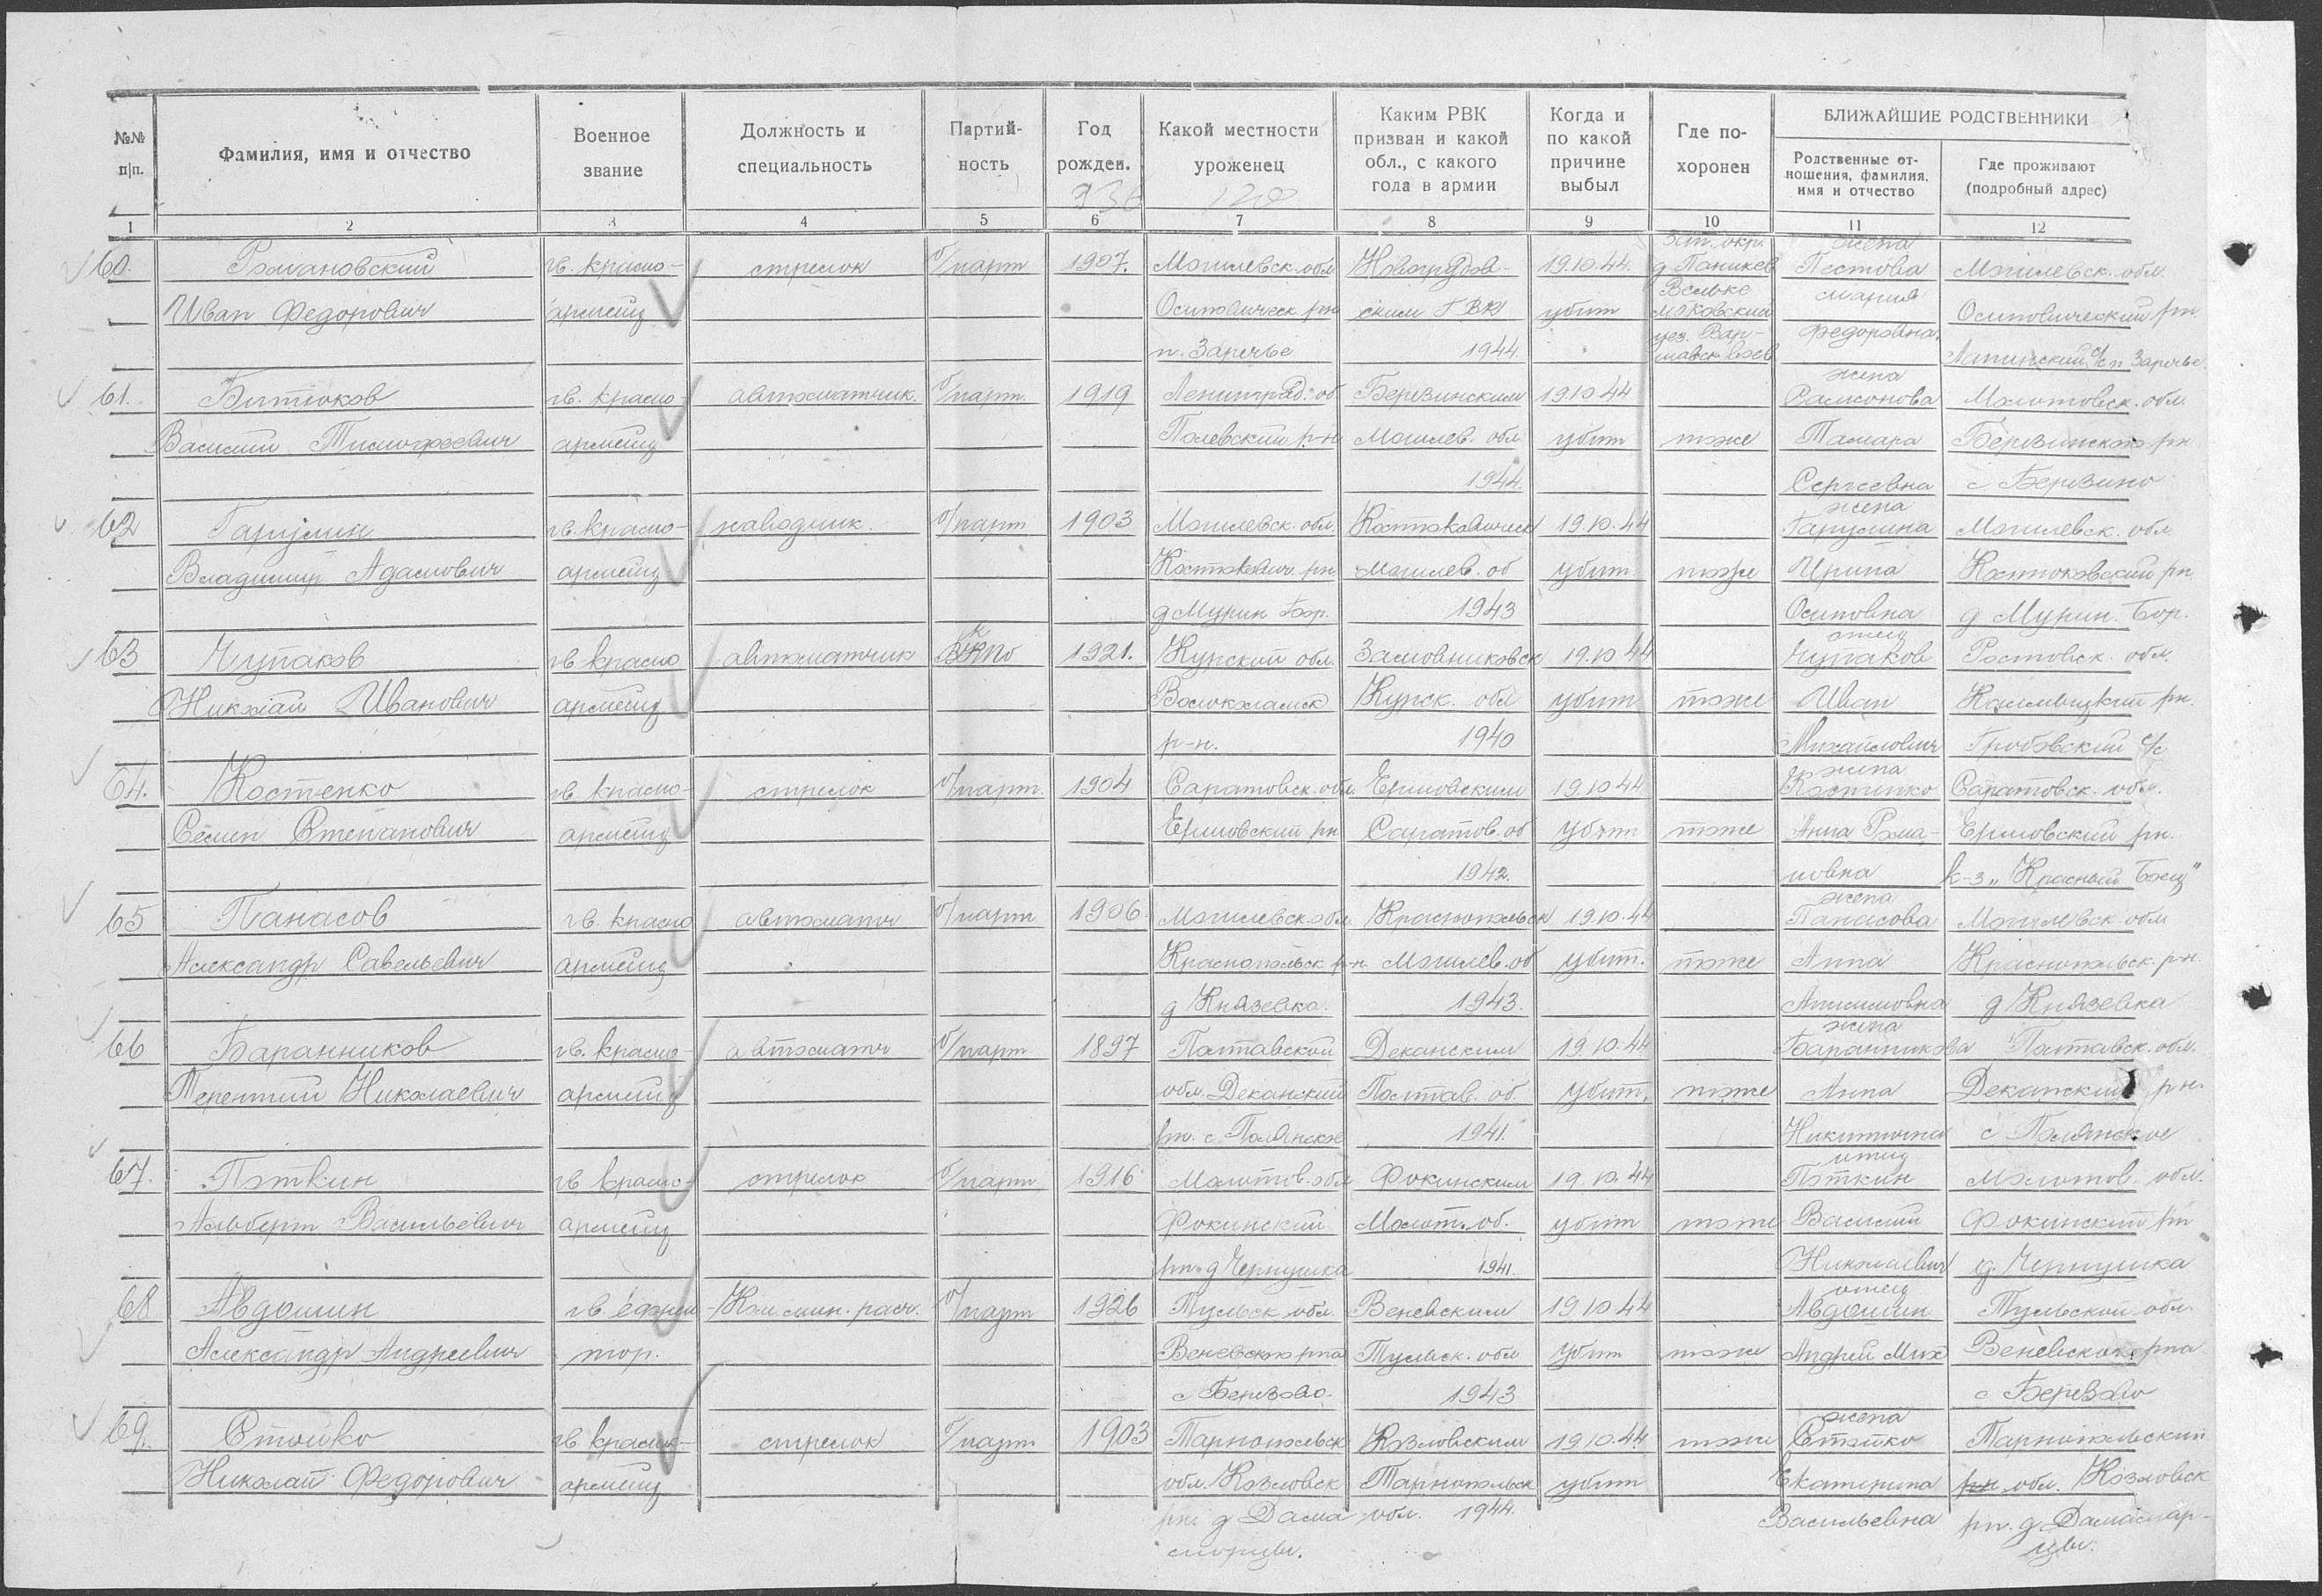 №№ п|п.
Фамилия, имя и отчество
Военное звание
Должность и специальность
Партий-ность
Год рожден.
Какой местности уроженец
Каким РВК призван и какой обл., с какого года в армии
Когда и по какой причине выбыл
Где по-хоронен
БЛИЖАЙШИЕ РОДСТВЕННИКИ
Родственные от-ношения, фамилия, имя и отчество
Где проживают (подробный адрес)
1 2 3 4 5 6 7 8 9 10 11 12
жена
60. Романовский гв. красно- стрелок б/парт 1907. Могилевск. обл 19.10.44. Пестова Могилевск. обл.
Иван Федорович армеец Осиповическ рн ским ГВК убит Мария Осиповический рн.
п. Заречье 1944. Федоровна. с/с п Заречье.
жена
61. Битюков гв. красно- автоматчик. б/парт. 1919 Ленинград. об Березинским 19.10.44 Самсонова обл
Василий Тимофеевич армеец р-н Могилев. обл убит тоже Тамара Березинского рн
1944. Сергеевна с Березино
жена
62 Гарулин гв. красно- наводчик. б/парт 1903 Могилевск. обл. 19.10.44 Гарулина Могилевск. обл.
Владимир Адамович армеец рн. Могилев. об убит тоже Ирина рн.
д Бор. 1943 Осиповна д Бор.
отец
63 Чупаков гв красно автоматчик ВКПб 1921. Курской обл. 19.10.44 Чупаков Ростовск. обл.
Николай Иванович армеец Курск. обл убит тоже Иван рн.
р-н. 1940 Михайлович с/с
жена
64. Костенко гв. красно- стрелок б/парт. 1904 Саратовск. обл. Ершовским 19.10.44 Костенко Саратовск. обл.
Семен Степанович армеец Ершовский рн Саратов. об убит тоже Анна Рома- Ершовский рн.
1942. новна к-з „Красный Боец"
жена
65 Панасов гв. красно автоматч б/парт 1906. Могилевск. обл. Краснопольск 19.10.44 Панасова Могилевск обл
Александр Савельевич армеец Краснопольск р-н Могилев. об убит. тоже Анна Краснопольск. р-н.
д Князевка. 1943. Анисимовна д Князевка
жена
66 Баранников гв. красно- автоматч б/парт 1897 Полтавской Деканским 19.10.44 Баранникова Полтавск. обл.
Терентий Николаевич армеец обл. Деканский Полтав. об. убит. тоже Анна Деканский рн.
рн. с. 1941. Никитична с
отец
67. Поткин гв красно- стрелок б/парт 1916 Молотов. обл Фокинским 19.10.44 Поткин Молотов. обл.
Альберт Васильевич армеец Фокинский Молот. об. убит тоже Василий Фокинский рн
рн. д Чернушка 1941. Николаевич д. Чернушка
отец
68 Авдошин гв. ефрей- Ком. мин. расч. б/парт 1926 Тульск обл. Веневским 19.10.44 Авдошин Тульской обл
Александр Андреевич тор. Веневского рна Тульск. обл убит тоже Андрей Мих Веневского рна
с Березово. 1943 с Березово
жена
69. Стойко гв красно- стрелок б/парт 1903 Тарнопольск Козловским 19.10.44 тоже Стойко Тарнопольский
Николай Федорович армеец обл. Козловск Тарнопольск убит Екатерина обл. Козловск
рн. д обл. 1944. Васильевна рн. д